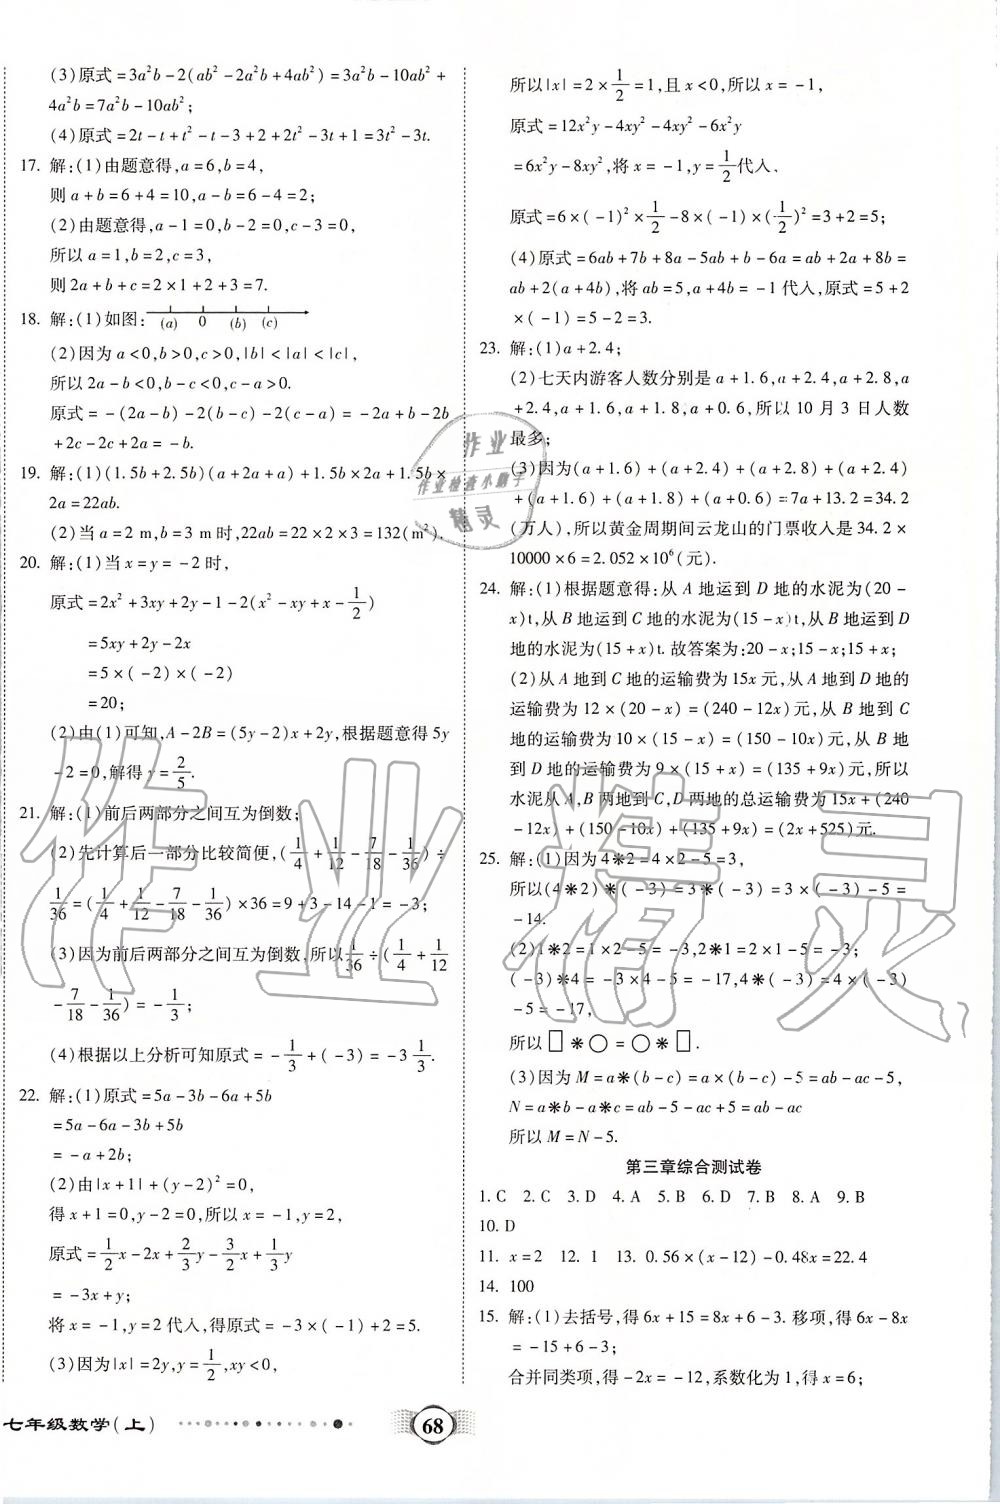 (3)原式=3a²b-2(ab²-2a²b+4ab²)=3a²b-10ab²+
4a²b=7a²b-10ab²;
(4)原式=2t-t+t²-t-3+2+2t²-3t+1=3t²-3t.
17. 解:(1)由题意得,a=6,b=4,
则a+b=6+4=10,a-b=6-4=2;
(2)由题意得,a-1=0,b-2=0,c-3=0,
所以a=1,b=2,c=3,
则2a+b+c=2×1+2+3=7.
18. 解:(1)如图:
(a) 0 (b) (c)
(2)因为a<0,b>0,c>0,|b|<|a|<|c|,
所以2a-b<0,b-c<0,c-a>0.
原式=-(2a-b)-2(b-c)-2(c-a)=-2a+b-2b
+2c-2c+2a=-b.
19. 解:(1)(1.5b+2.5b)(a+2a+a)+1.5b×2a+1.5b×
2a=22ab.
(2)当a=2 m,b=3 m时,22ab=22×2×3=132(m²).
20. 解:(1)当x=y=-2时,
原式=2x²+3xy+2y-1-2(x²-xy+x-1/2)
=5xy+2y-2x
=5×(-2)×(-2)
=20;
(2)由(1)可知,A-2B=(5y-2)x+2y,根据题意得5y
-2=0,解得y=2/5.
21. 解:(1)前后两部分之间互为倒数;
(2)先计算后一部分比较简便,(1/4+1/12-7/18-1/36)÷
1/36=(1/4+1/12-7/18-1/36)×36=9+3-14-1=-3;
(3)因为前后两部分之间互为倒数,所以1/36÷(1/4+1/12
-7/18-1/36)=-1/3;
(4)根据以上分析可知原式=-1/3+(-3)=-3 1/3.
22. 解:(1)原式=5a-3b-6a+5b
=5a-6a-3b+5b
=-a+2b;
(2)由|x+1|+(y-2)²=0,
得x+1=0,y-2=0,所以x=-1,y=2,
原式=1/2x-2x+2/3y-3/2x+1/3y
=-3x+y;
将x=-1,y=2代入,得原式=-3×(-1)+2=5.
(3)因为|x|=2y,y=1/2,xy<0,
所以|x|=2×1/2=1,且x<0,所以x=-1,
原式=12x²y-4xy²-4xy²-6x²y
=6x²y-8xy²,将x=-1,y=1/2代入.
原式=6×(-1)²×1/2-8×(-1)×(1/2)²=3+2=5;
(4)原式=6ab+7b+8a-5ab+b-6a=ab+2a+8b=
ab+2(a+4b),将ab=5,a+4b=-1代入,原式=5+2
×(-1)=5-2=3.
23. 解:(1)a+2.4;
(2)七天内游客人数分别是a+1.6,a+2.4,a+2.8,a
+2.4,a+1.6,a+1.8,a+0.6,所以10月3日人数
最多;
(3)因为(a+1.6)+(a+2.4)+(a+2.8)+(a+2.4)
+(a+1.6)+(a+1.8)+(a+0.6)=7a+13.2=34.2
(万人),所以黄金周期间云龙山的门票收入是34.2×
10000×6=2.052×10⁶(元).
24. 解:(1)根据题意得:从A地运到D地的水泥为(20-
x)t,从B地运到C地的水泥为(15-x)t,从B地运到D
地的水泥为(15+x)t.故答案为:20-x;15-x;15+x;
(2)从A地到C地的运输费为15x元,从A地到D地的
运输费为12×(20-x)=(240-12x)元,从B地到C
地的运输费为10×(15-x)=(150-10x)元,从B地
到D地的运输费为9×(15+x)=(135+9x)元,所以
水泥从A,B两地到C,D两地的总运输费为15x+(240
-12x)+(150-10x)+(135+9x)=(2x+525)元.
25. 解:(1)因为4※2=4×2-5=3,
所以(4※2)※(-3)=3※(-3)=3×(-3)-5=
-14.
(2)1※2=1×2-5=-3,2※1=2×1-5=-3;
(-3)※4=-3×4-5=-17,4※(-3)=4×(-3)
-5=-17,
所以□※○=○※□.
(3)因为M=a※(b-c)=a×(b-c)-5=ab-ac-5,
N=a※b-a※c=ab-5-ac+5=ab-ac
所以M=N-5.
第三章综合测试卷
1. C 2. C 3. D 4. A 5. B 6. D 7. B 8. A 9. B
10. D
11. x=2 12. 1 13. 0.56×(x-12)-0.48x=22.4
14. 100
15. 解:(1)去括号,得6x+15=8x+6-3.移项,得6x-8x
=-15+6-3;
合并同类项,得-2x=-12,系数化为1,得x=6;
七年级数学(上)
68
作业
作业检查小助手
精灵
作业精灵